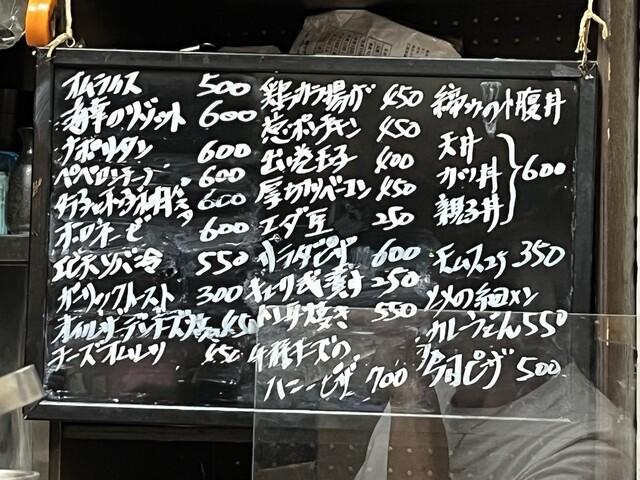 オムライス 500
海幸のリゾット 600
ナポリタン 600
ペペロンチーノ 600
600
ボロネーゼ 600
エビチリソバ 550
ガーリックトースト 300
オイルサーディンチーズ 450
チーズオムレツ 450
鶏カラ揚げ 450
ポンチキン 450
出し巻玉子 400
厚切りベーコン 450
エダ豆 250
サラダピザ 600
キューリ浅漬け 250
焼き 550
4種チーズの
ハニーピザ 700
腹丼
天丼
カツ丼
親子丼
600
350
〆の
カレーうどん 550
ピザ 500